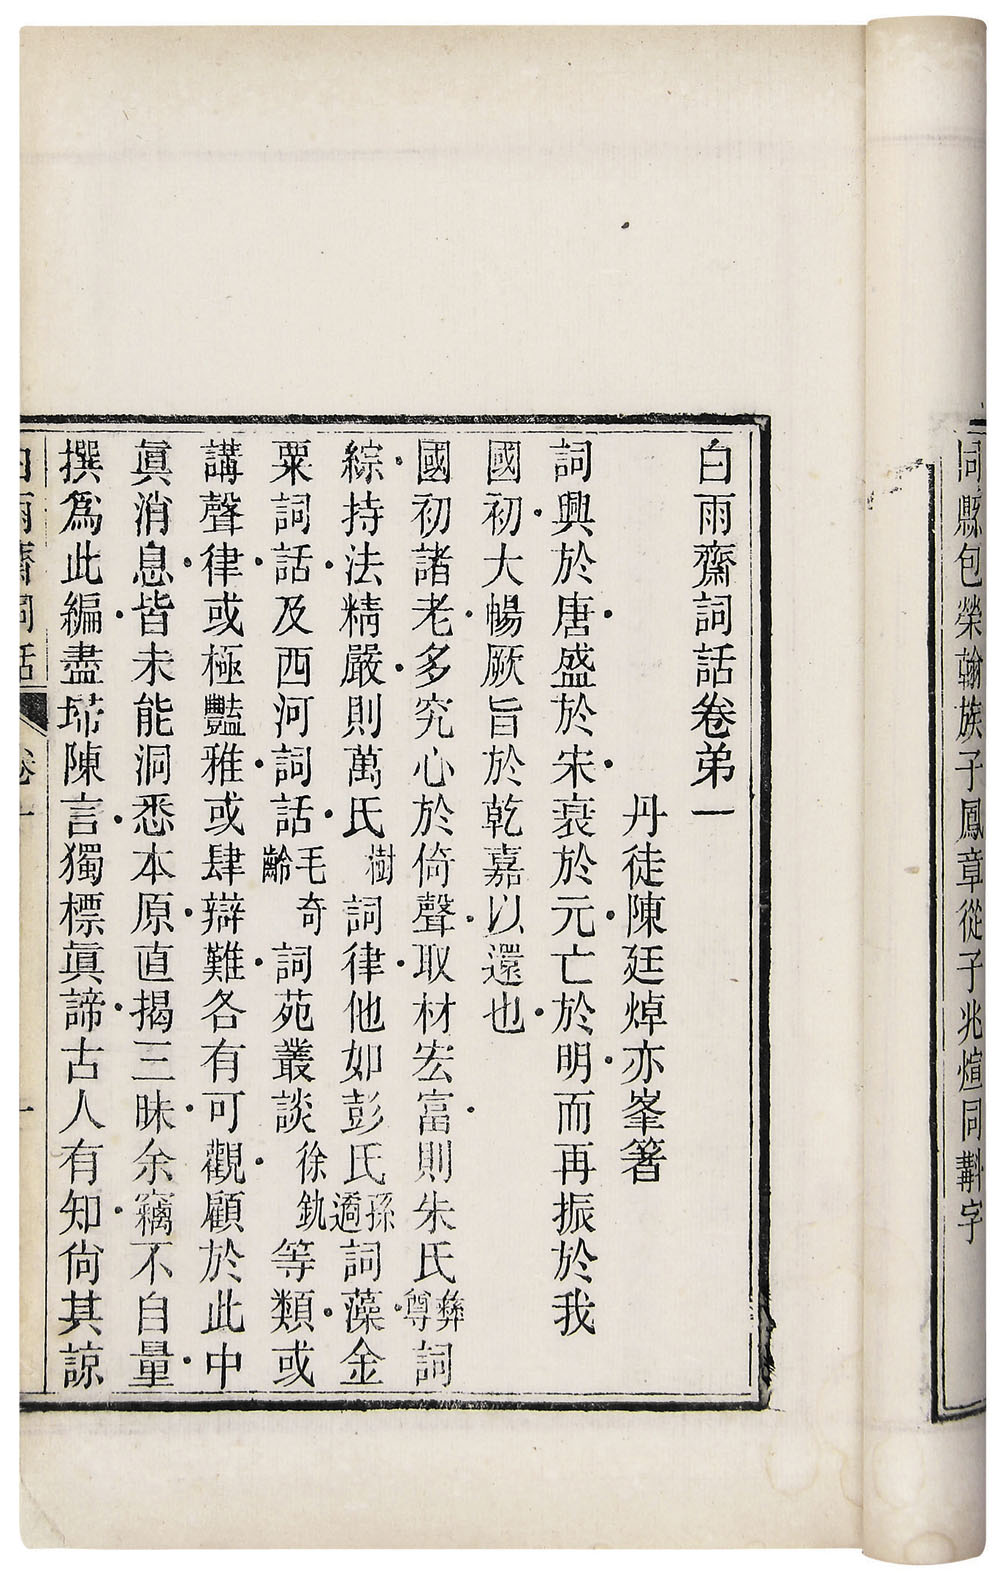 同縣包榮翰族子鳳章從子兆煊同斠字
白雨齋詞話卷弟一
丹徒陳廷焯亦峯箸
詞興於唐盛於宋衰於元亡於明而再振於我
國初大暢厥旨於乾嘉以還也
國初諸老多究心於倚聲取材宏富則朱氏彝尊詞
綜持法精嚴則萬氏樹詞律他如彭氏孫遹詞藻金
粟詞話及西河詞話毛奇齡詞苑叢談徐釚等類或
講聲律或極豔雅或肆辯難各有可觀顧於此中
眞消息皆未能洞悉本原直揭三昧余竊不自量
撰爲此編盡埽陳言獨標眞諦古人有知尙其諒
白雨齋詞話 卷一 一